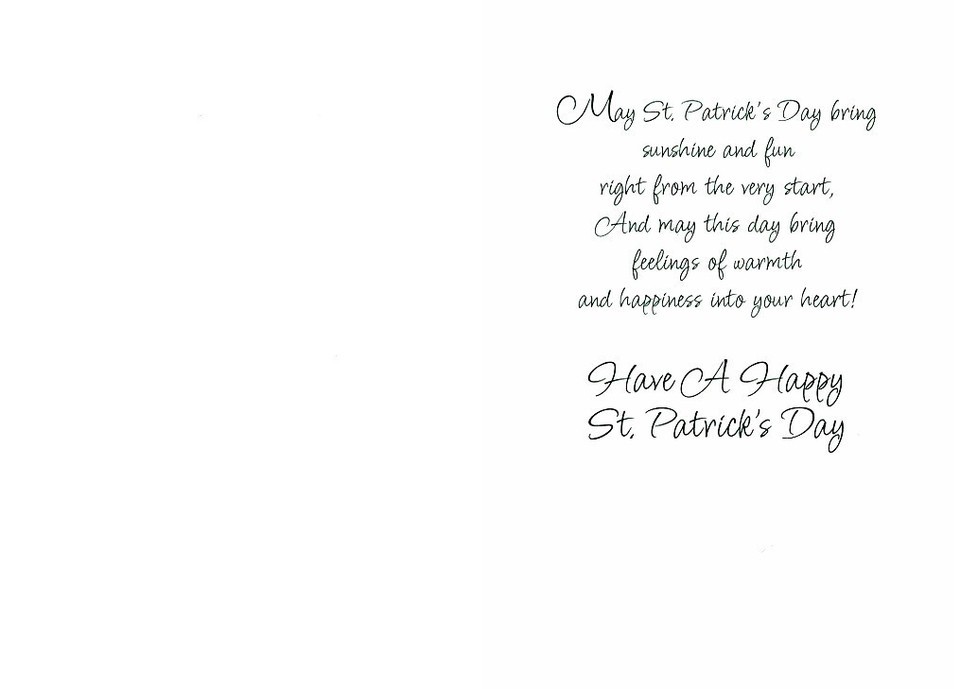 May St. Patrick's Day bring
sunshine and fun
right from the very start,
And may this day bring
feelings of warmth
and happiness into your heart!
Have A Happy
St. Patrick's Day